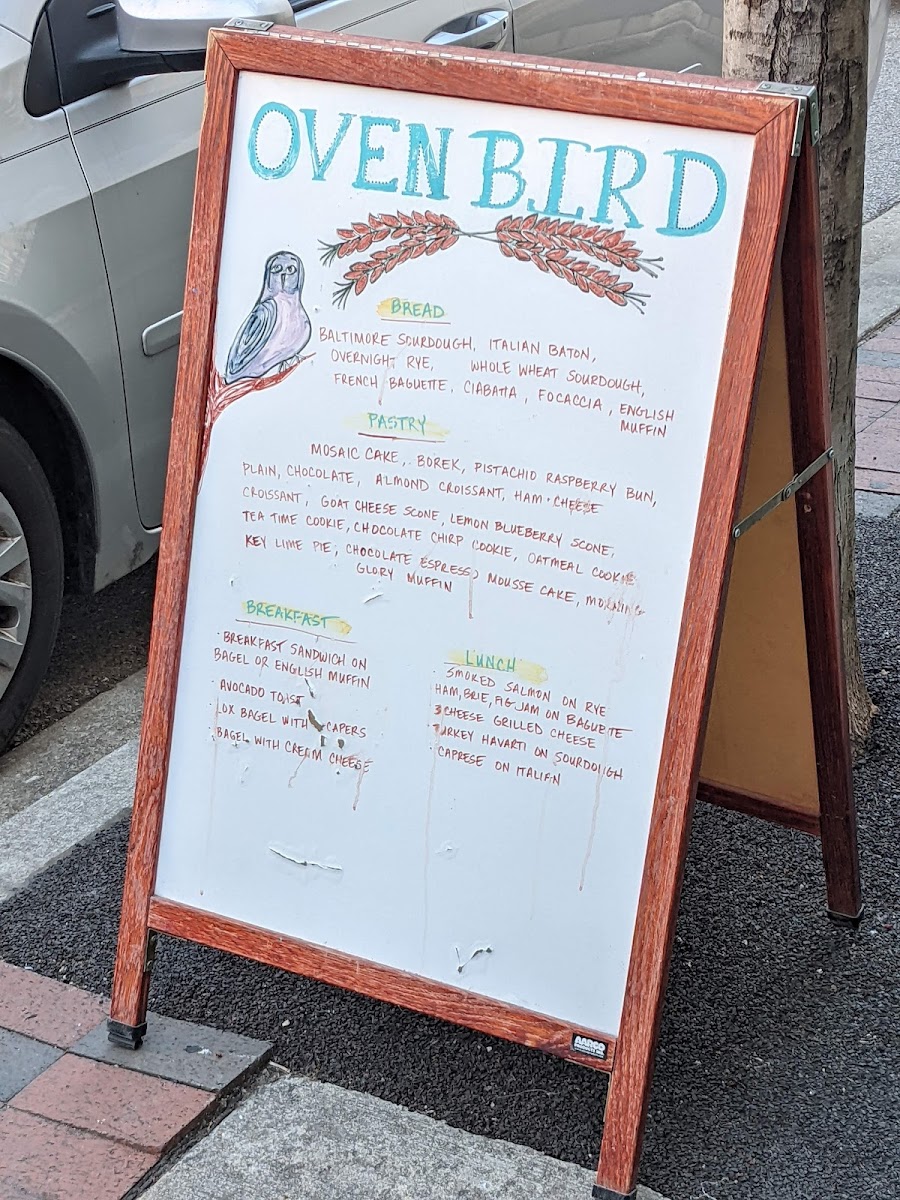 OVEN BIRD
BREAD
BALTIMORE SOURDOUGH, ITALIAN BATON,
OVERNIGHT RYE, WHOLE WHEAT SOURDOUGH,
FRENCH BAGUETTE, CIABATTA, FOCACCIA, ENGLISH
MUFFIN
PASTRY
MOSAIC CAKE, BOREK, PISTACHIO RASPBERRY BUN,
PLAIN, CHOCOLATE, ALMOND CROISSANT, HAM + CHEESE
CROISSANT, GOAT CHEESE SCONE, LEMON BLUEBERRY SCONE,
TEA TIME COOKIE, CHOCOLATE CHIRP COOKIE, OATMEAL COOKIE
KEY LIME PIE, CHOCOLATE ESPRESSO MOUSSE CAKE, MORNING
GLORY MUFFIN
BREAKFAST
· BREAKFAST SANDWICH ON
BAGEL OR ENGLISH MUFFIN
· AVOCADO TOAST
· LOX BAGEL WITH CAPERS
· BAGEL WITH CREAM CHEESE
LUNCH
· SMOKED SALMON ON RYE
HAM, BRIE, FIG JAM ON BAGUETTE
3 CHEESE GRILLED CHEESE
TURKEY HAVARTI ON SOURDOUGH
CAPRESE ON ITALIAN
AARCO